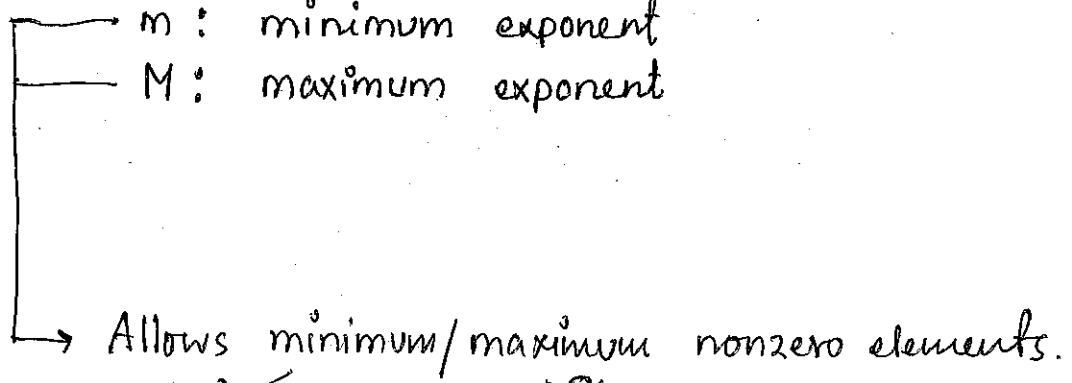 m : minimum exponent
M : maximum exponent
Allows minimum/maximum nonzero elements.